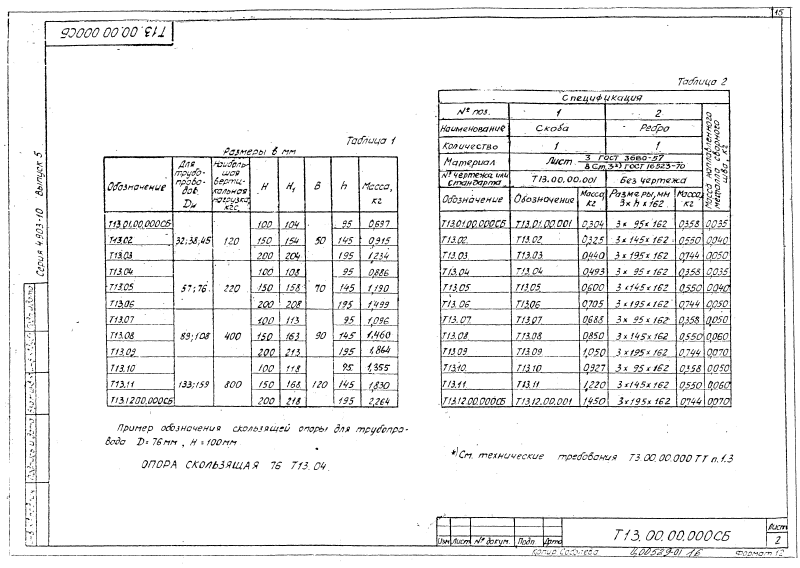 15
Т13.00.00.000СБ
Серия 4.903-10 Выпуск 5
Таблица 1
Размеры в мм
Обозначение Для трубопроводов Dн Наибольшая вертикальная нагрузка, кгс H H1 B h Масса, кг
Т13.01.00.000СБ 100 104 95 0,697
Т13.02 32;38,45 120 150 154 50 145 0,915
Т13.03 200 204 195 1,234
Т13.04 100 108 95 0,886
Т13.05 57;76 220 150 158 70 145 1,190
Т13.06 200 208 195 1,499
Т13.07 100 113 95 1,096
Т13.08 89;108 400 150 163 90 145 1,460
Т13.09 200 213 195 1,864
Т13.10 100 118 95 1,355
Т13.11 133;159 800 150 168 120 145 1,830
Т13.12.00.000СБ 200 218 195 2,264
Пример обозначения скользящей опоры для трубопро-
вода D=76мм, H=100мм.
ОПОРА СКОЛЬЗЯЩАЯ 76 Т13.04.
Таблица 2
Спецификация
№ поз. 1 2
Наименование Скоба Ребро
Количество 1 1
Материал Лист 3 ГОСТ 3680-57
В Ст.3*) ГОСТ 16523-70
№ чертежа или стандарта Т13.00.00.001 Без чертежа
Обозначение Обозначение Масса, кг Размеры, мм 3×h×162 Масса, кг Масса наплавленного металла сварного шва, кг
Т13.01.00.000СБ Т13.01.00.001 0,304 3× 95×162 0,358 0,035
Т13.02. Т13.02. 0,325 3×145×162 0,550 0,040
Т13.03. Т13.03. 0,440 3×195×162 0,744 0,050
Т13.04 Т13.04 0,493 3× 95×162 0,358 0,035
Т13.05 Т13.05. 0,600 3×145×162 0,550 0,040
Т13.06 Т13.06. 0,705 3×195×162 0,744 0,050
Т13.07. Т13.07. 0,688 3× 95×162 0,358 0,050
Т13.08. Т13.08. 0,850 3×145×162 0,550 0,060
Т13.09 Т13.09 1,050 3×195×162 0,744 0,070
Т13.10. Т13.10. 0,927 3× 95×162 0,358 0,050
Т13.11. Т13.11 1,220 3×145×162 0,550 0,060
Т13.12.00.000СБ Т13.12.00.001 1,450 3×195×162 0,744 0,070
*) См. технические требования Т3.00.00.000 ТТ п.1.3
Изм Лист № докум. Подп. Дата
Т13.00.00.000СБ
Лист
2
Копир
Формат 12